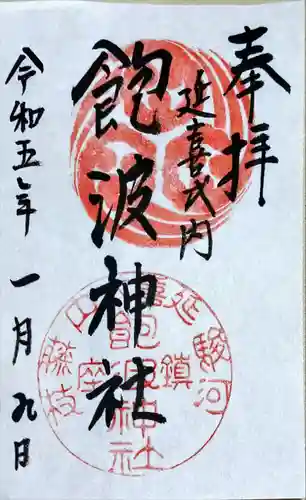 奉拝
延喜式内
飽波神社
令和五年一月九日
延喜
駿河
鎮座
藤枝
飽波神社